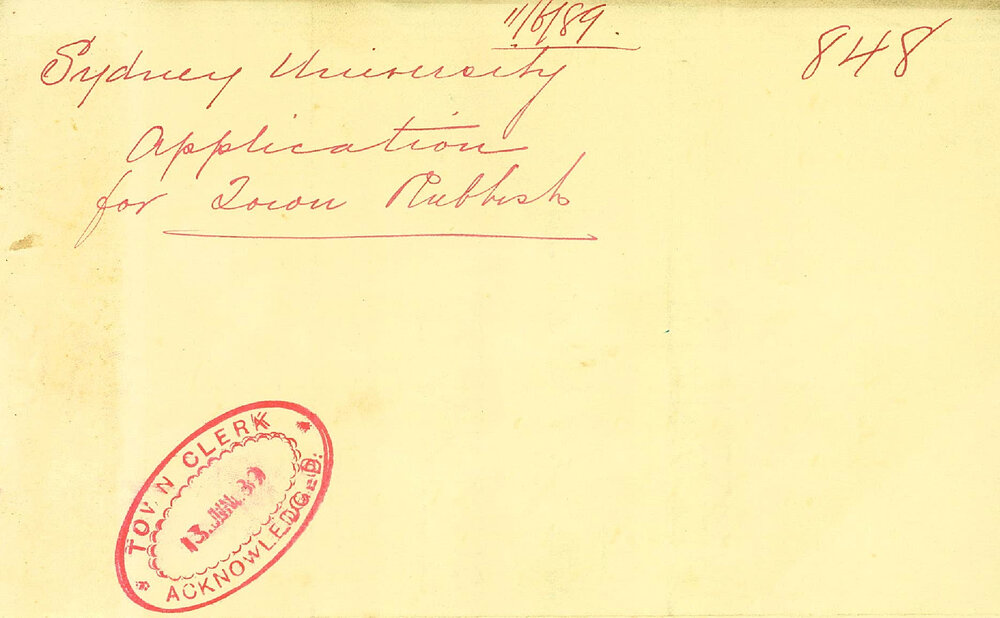 11/6/89.
848
Sydney University
Application
for Town Rubbish
TOWN CLERK
13. JUN. 89
ACKNOWLEDGED.